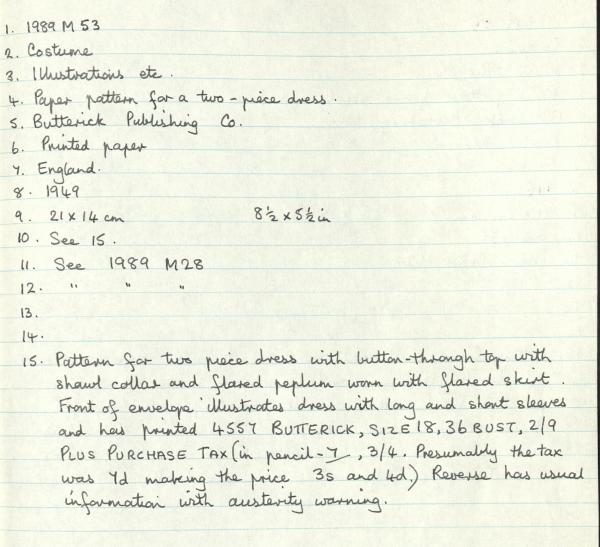 1. 1989 M 53
2. Costume
3. Illustrations etc.
4. Paper pattern for a two-piece dress.
5. Butterick Publishing Co.
6. Printed paper
7. England.
8. 1949
9. 21 x 14 cm 8½ x 5½ in
10. See 15.
11. See 1989 M28
12. " " "
13.
14.
15. Pattern for two piece dress with button-through top with
shawl collar and flared peplum worn with flared skirt.
Front of envelope illustrates dress with long and short sleeves
and has printed 4557 BUTTERICK, SIZE 18, 36 BUST, 2/9
PLUS PURCHASE TAX (in pencil - 7, 3/4. Presumably the tax
was 7d making the price 3s and 4d.) Reverse has usual
information with austerity warning.